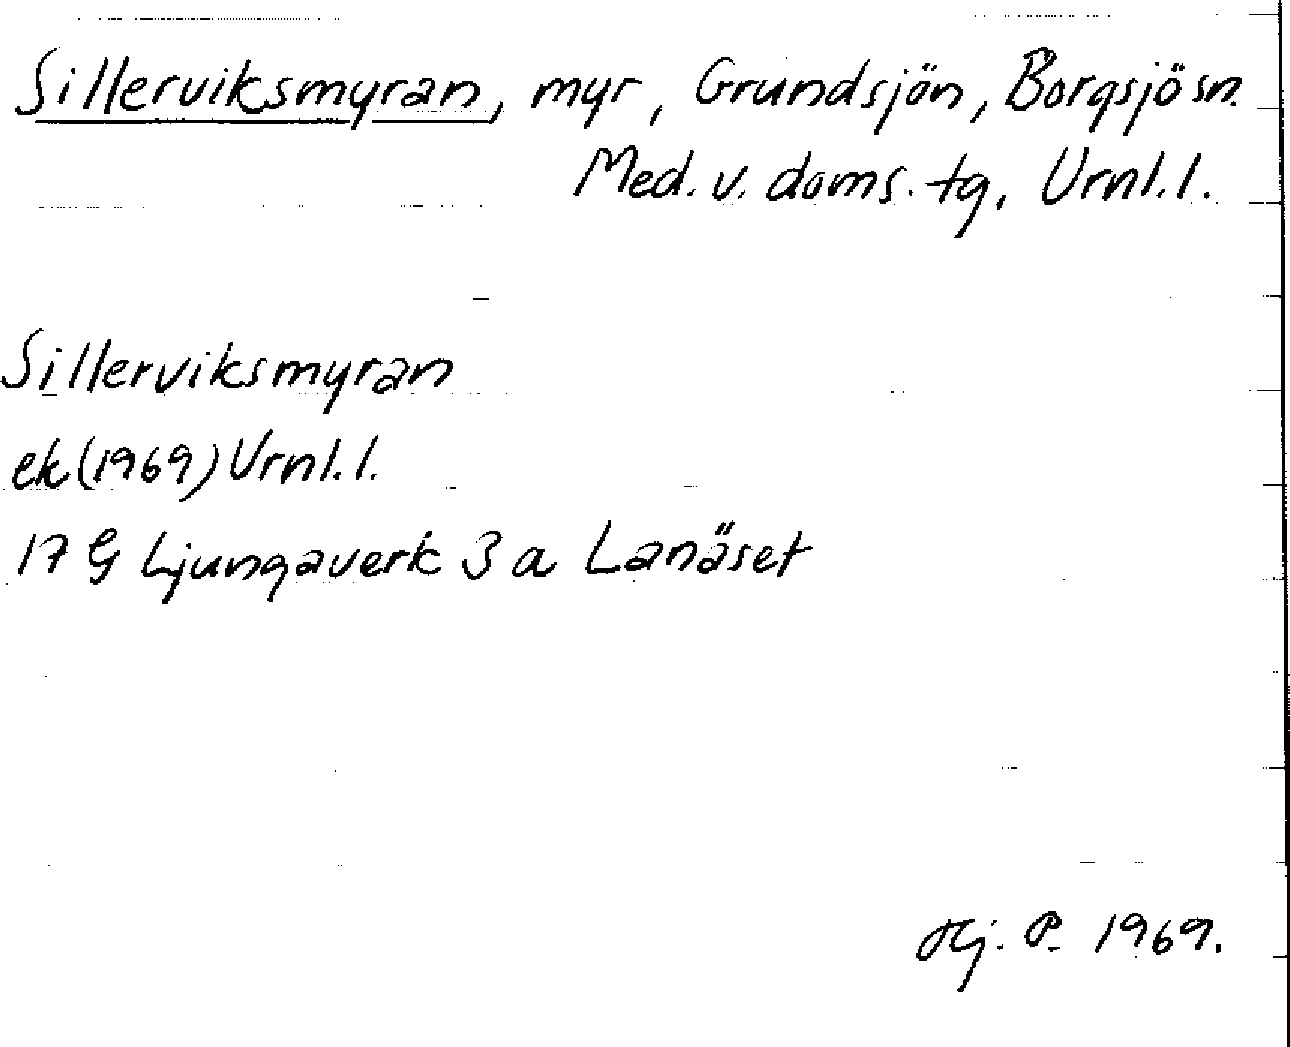 Sillerviksmyran, myr, Grundsjön, Borgsjö sn.
Med. v. doms. tg, Urnl. l.
Sillerviksmyran
ek (1969) Urnl. l.
17 G Ljungaverk 3 a Lanäset
Hj. P. 1969.